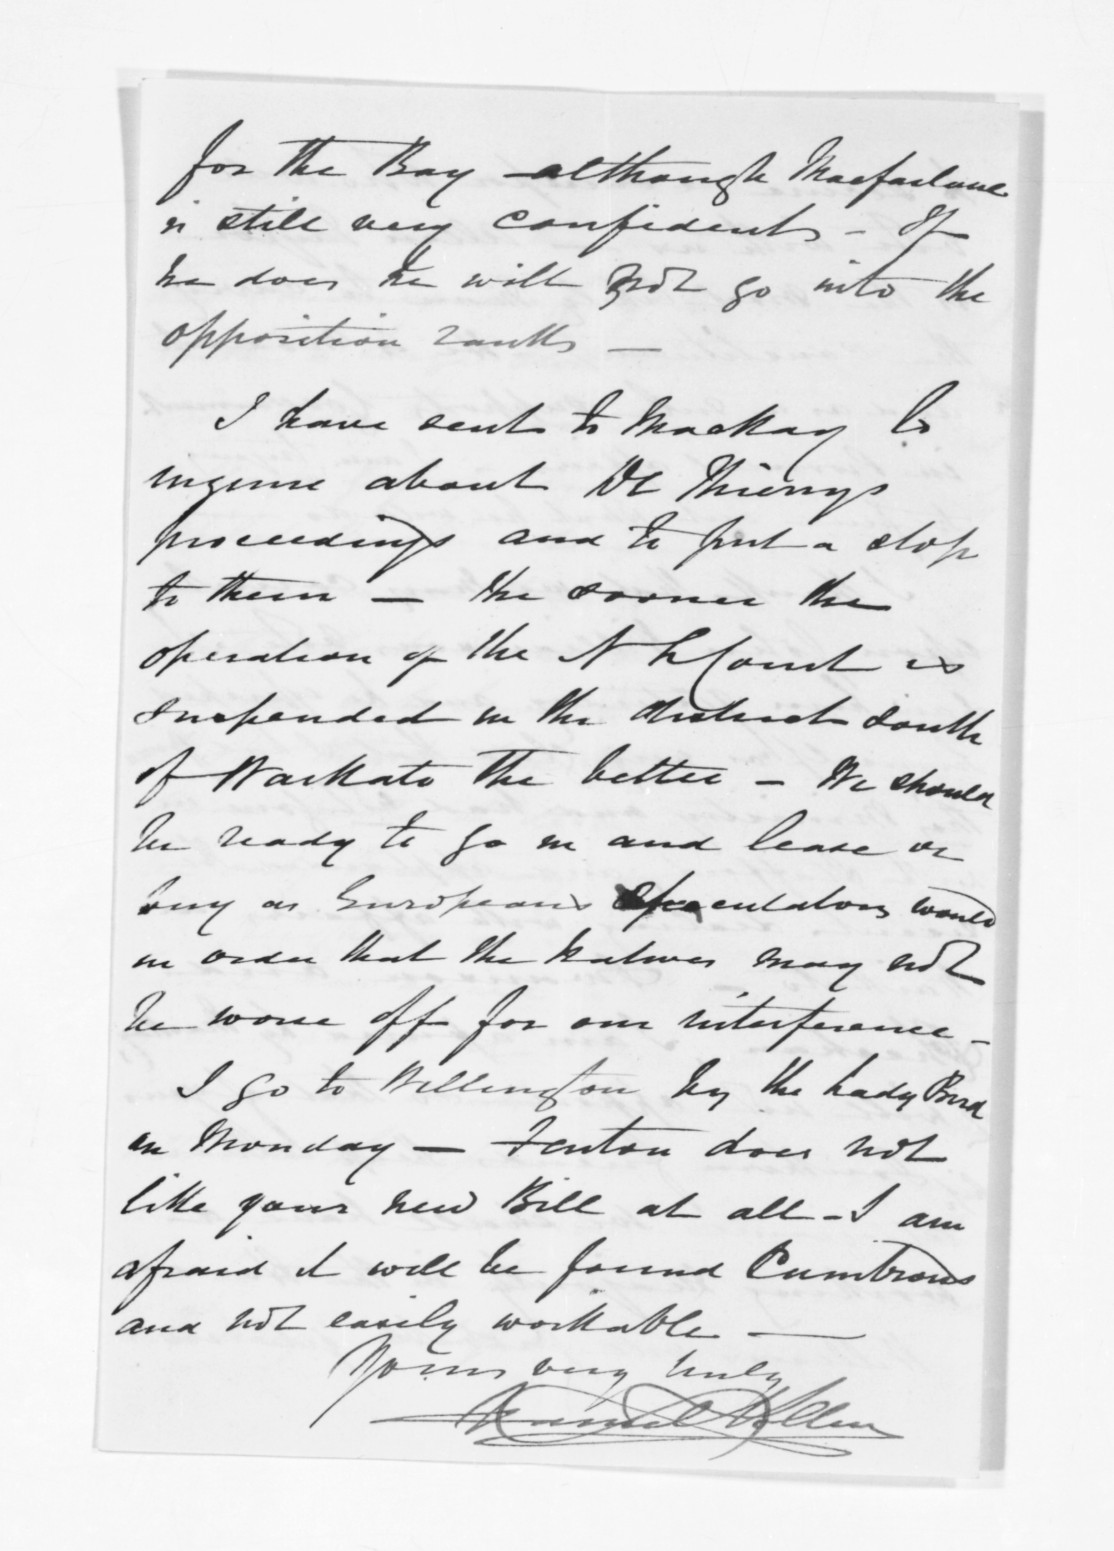 for the Bay - although Macfarlane
is still very confident - If
he does he will not go into the
opposition ranks —
I have sent to Mackay to
inquire about De Thierrys
proceedings and to put a stop
to them — the sooner the
operation of the N L Court is
suspended in the district south
of Waikato the better - We should
be ready to go in and lease or
buy as Europeans speculators would
in order that the natives may not
be worse off for our interference -
I go to Wellington by the Lady Bird
on Monday — Fenton does not
like your new Bill at all - I am
afraid it will be found Cumbrous
and not easily workable —
Yours very truly
Daniel Pollen